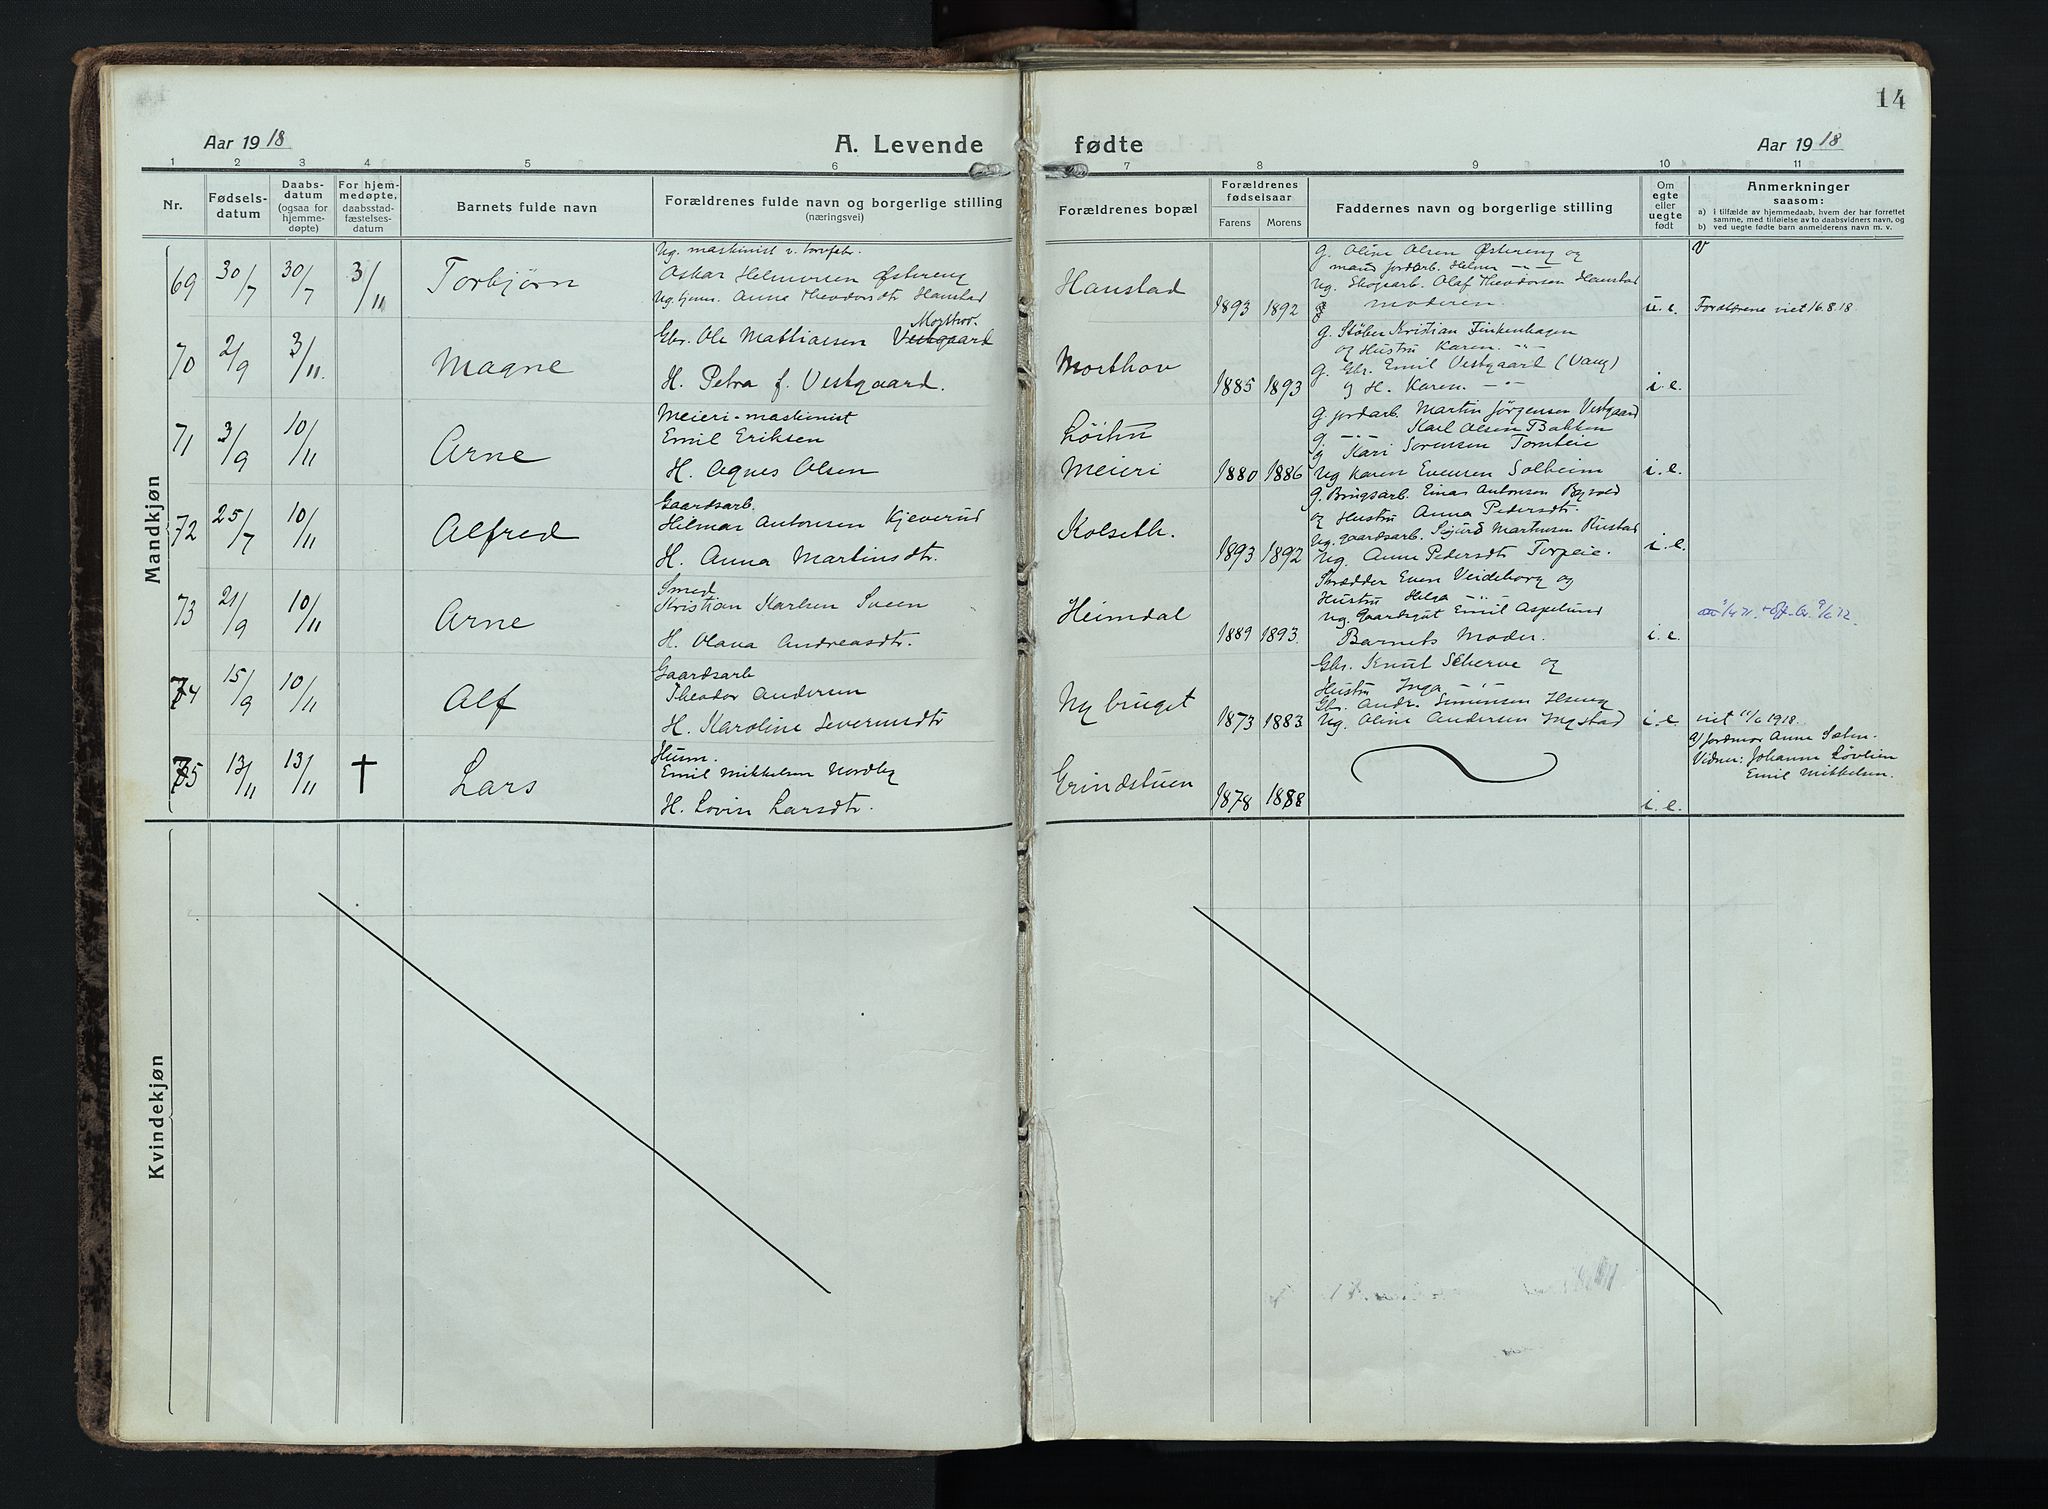 14
Aar 1918 A. Levende fødte Aar 1918
1 2 3 4 5 6 7 8 9 10 11
Nr.
Fødsels-
datum
Daabs-
datum
(ogsaa for
hjemme-
døpte)
For hjem-
medøpte,
daabsstad-
fæstelses-
datum
Barnets fulde navn
Forældrenes fulde navn og borgerlige stilling
(næringsvei)
Forældrenes bopæl
Forældrenes
fødselsaar
Farens Morens
Faddernes navn og borgerlige stilling
Om
egte
eller
uegte
født
Anmerkninger
saasom:
a) i tilfælde av hjemmedaab, hvem der har forrettet
samme, med tilføielse av to daabsvidners navn, og
b) ved uegte fødte barn anmelderens navn m. v.
Mandkjøn
69 30/7 30/7 3/11 Torbjørn
Ug. maskinist v. torvfabr.
Oskar Helmersen Østereng
Ug. tjen. Anna Theodorsdtr Hanstad
Hanstad
1893 1892
G. Oline Olsen Østereng og
mand jordarb. Helmer -"-
Ug. Skogsarb. Olaf Theodorsen Hanstad
moderen.
u.e.
V
Forældrene viet 16.8.18.
70 2/9 3/11. Magne
Morthov.
Gbr. Ole Mathiasen Vestgaard
H. Petra f. Vestgaard.
Morthov
1885 1893
G. Støber Kristian Finkenhagen
og Hustru Karen. -"-
G. Gbr. Emil Vestgaard (Vang)
og H. Karen. -"-
i.e.
71 3/9 10/11 Arne
Meieri-maskinist
Emil Eriksen
H. Agnes Olsen
Løiten
Meieri
1880 1886
G. jordarb. Martin Jørgensen Vestgaard
G. -"- Karl Olsen Bakken
G. Kari Sørensen Tomteie
Ug Karen Evensen Solheim
i.e.
72 25/7 10/11 Alfred
Gaardsarb.
Hilmar Antonsen Kjeverud
H. Anna Martinsdtr.
Kolseth.
1893 1892
G. Brugsarb. Einar Antonsen Byvold
og Hustru Anna Pedersdtr.
Ug. gaardsarb. Sigurd Martinsen Rustad
Ug. Anna Pedersdtr Torpeie.
i.e.
73 21/9 10/11 Arne
Smed
Kristian Karlsen Sveen
H. Olava Andreasdtr.
Heimdal
1889 1893.
Skrædder Even Veideborg og
Hustru Helga -"-
Ug. Gaardsgut Emil Aspelund
Barnets Moder.
i.e.
74 15/9 10/11 Alf
Gaardsarb
Theodor Andersen
H. Karoline Severinsdtr
Ny bruget
1873 1883.
Gbr. Knut Scherve og
Hustru Inga -"-
Gbr. Andr. Simensen Hseng
Ug. Oline Andersen Ingstad
i.e
viet 11/6 1918.
75 13/11 13/11 † Lars
Husm.
Emil Mikkelsen Nordby
H. Lovin Larsdtr.
Grindstuen
1878 1888
i.e.
a) Jordmor Anna Sæten.
Vidner: Johanne Løvlien
Emil Mikkelsen.
Kvindekjøn